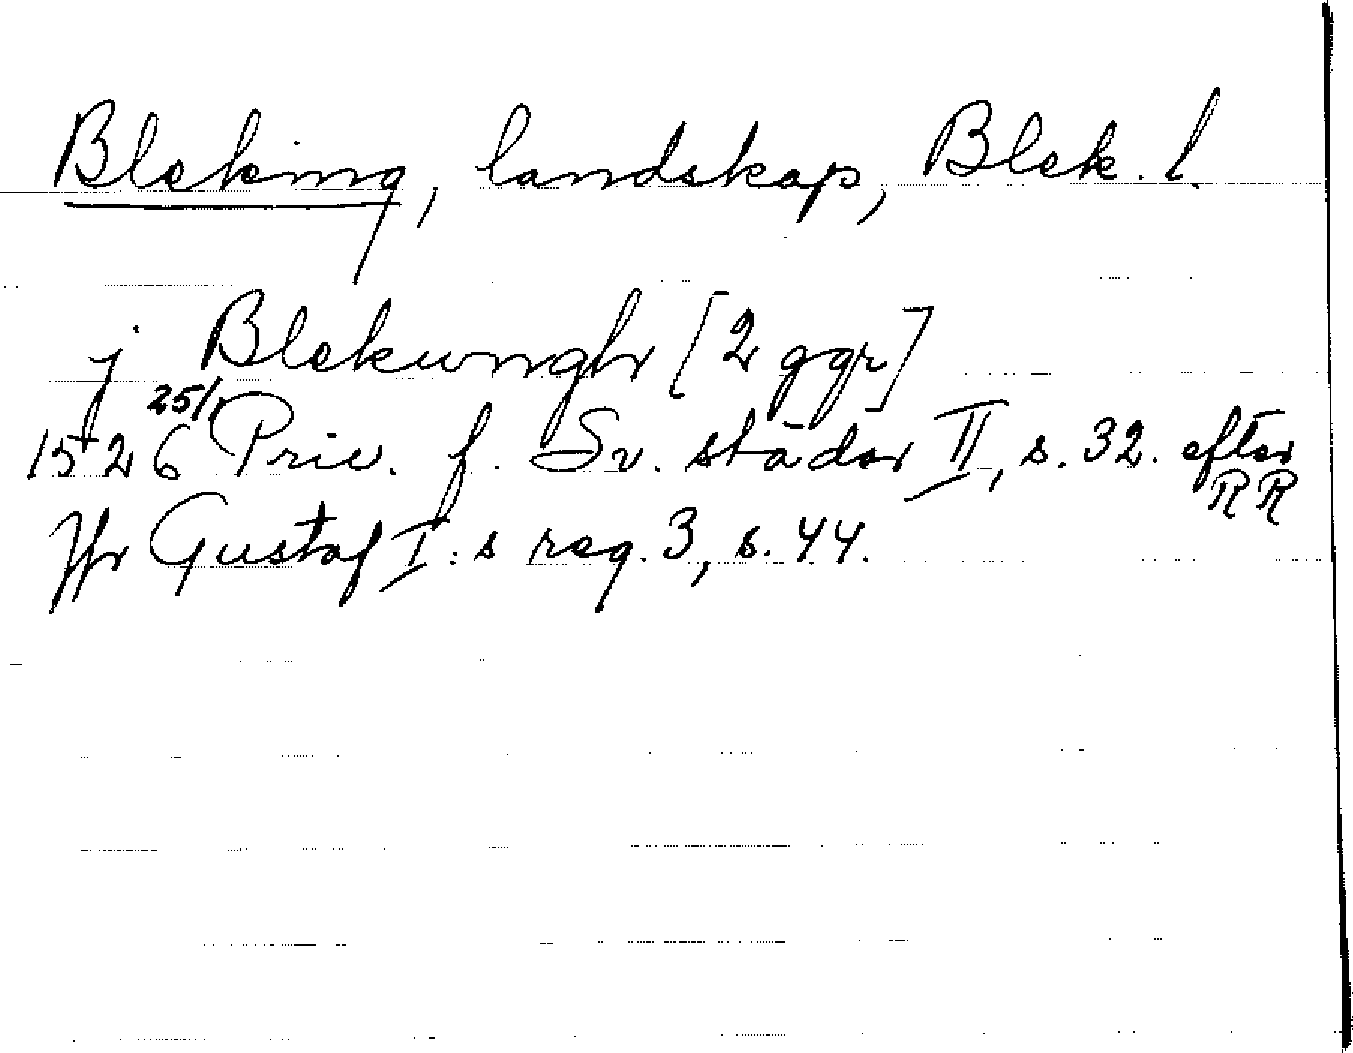 Bleking, landskap, Blek. l.
j Blekungh [2 ggr]
25/1
1526 Priv. f. Sv. städer II, s. 32. efter
RR
Jfr Gustaf I:s reg. 3, s. 44.